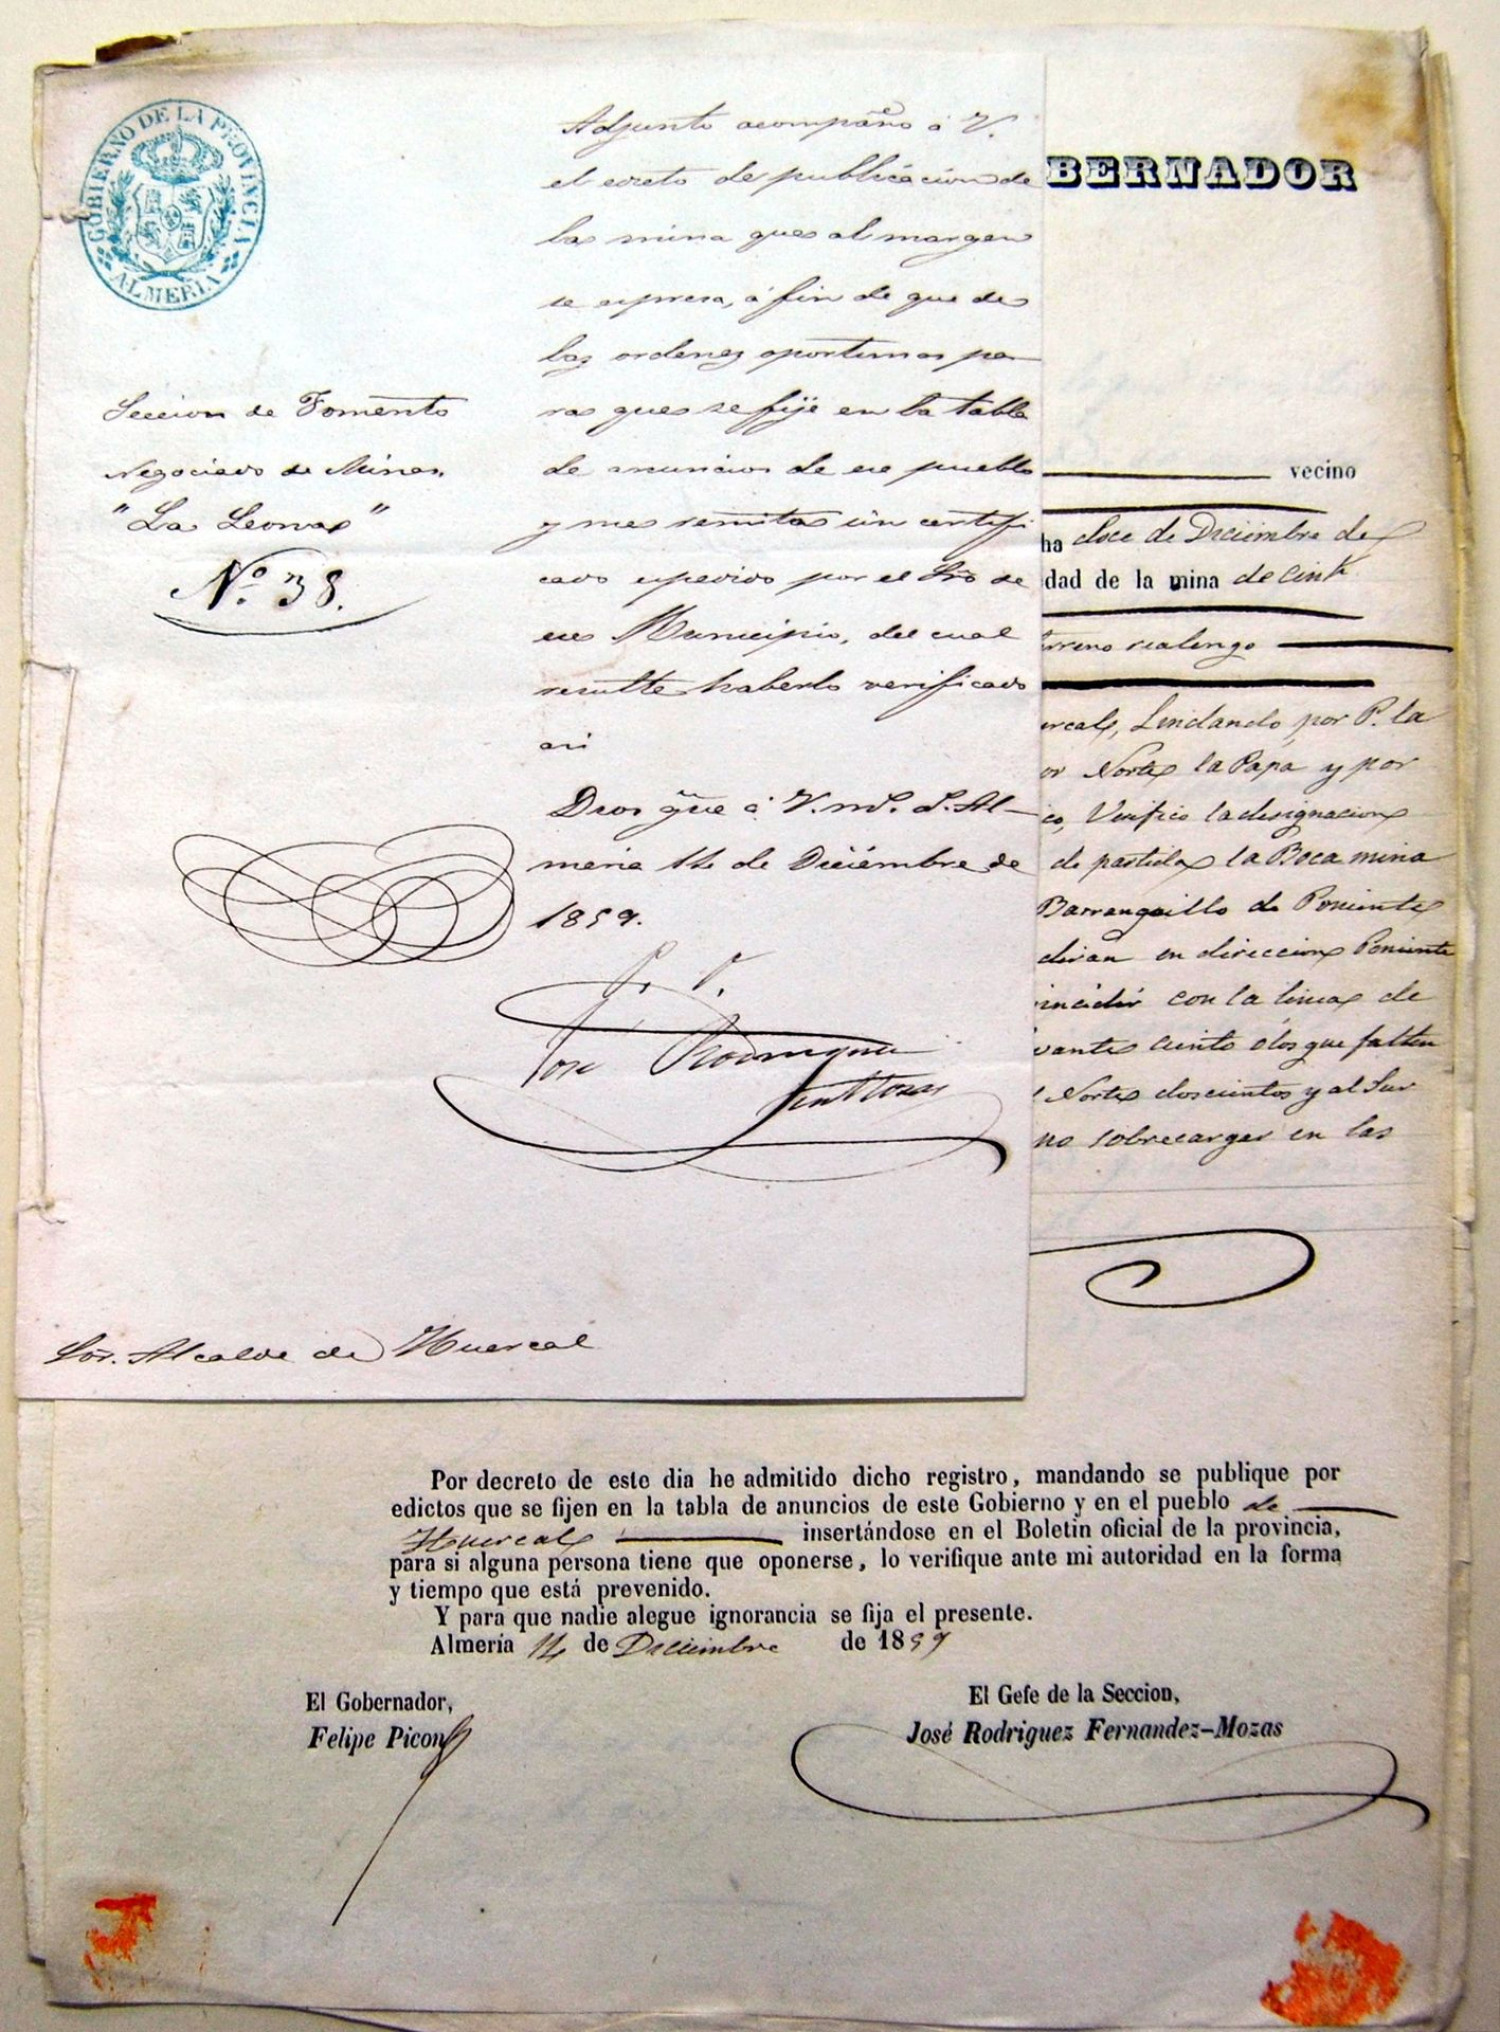 GOBIERNO DE LA PROVINCIA
ALMERIA
Seccion de Fomento
Negociado de Minas
"La Leona"
Nº. 38.
Adjunto acompaño á V.
el edicto de publicacion de
la mina que al margen
se espresa, á fin de que de
las ordenes oportunas pa-
ra que se fije en la tabla
de anuncios de ese pueblo
y me remita un certifi
cado espedido por el Srio de
ese Municipio, del cual
resulte haberlo verificado
asi
Dios gue á V. ms. as. Al-
meria 14 de Diciembre de
1859.
José Rodriguez
Sor. Alcalde de Huercal
BERNADOR
vecino
ha doce de Diciembre de
dad de la mina de cink
terreno realengo
ercal, Lindando por P. la
or Norte la Papa y por
co, Verifico la designacion
de partida la Boca mina
Barranquillo de Poniente
diran en direccion Poniente
incidir con la linea de
vante ciento ó los que falten
l Norte doscientos y al Sur
no sobrecargar en las
Por decreto de este dia he admitido dicho registro, mandando se publique por
edictos que se fijen en la tabla de anuncios de este Gobierno y en el pueblo de
Huercal insertándose en el Boletin oficial de la provincia,
para si alguna persona tiene que oponerse, lo verifique ante mi autoridad en la forma
y tiempo que está prevenido.
Y para que nadie alegue ignorancia se fija el presente.
Almería 14 de Diciembre de 1859
El Gobernador,
Felipe Picon
El Gefe de la Seccion,
José Rodriguez Fernandez-Mozas